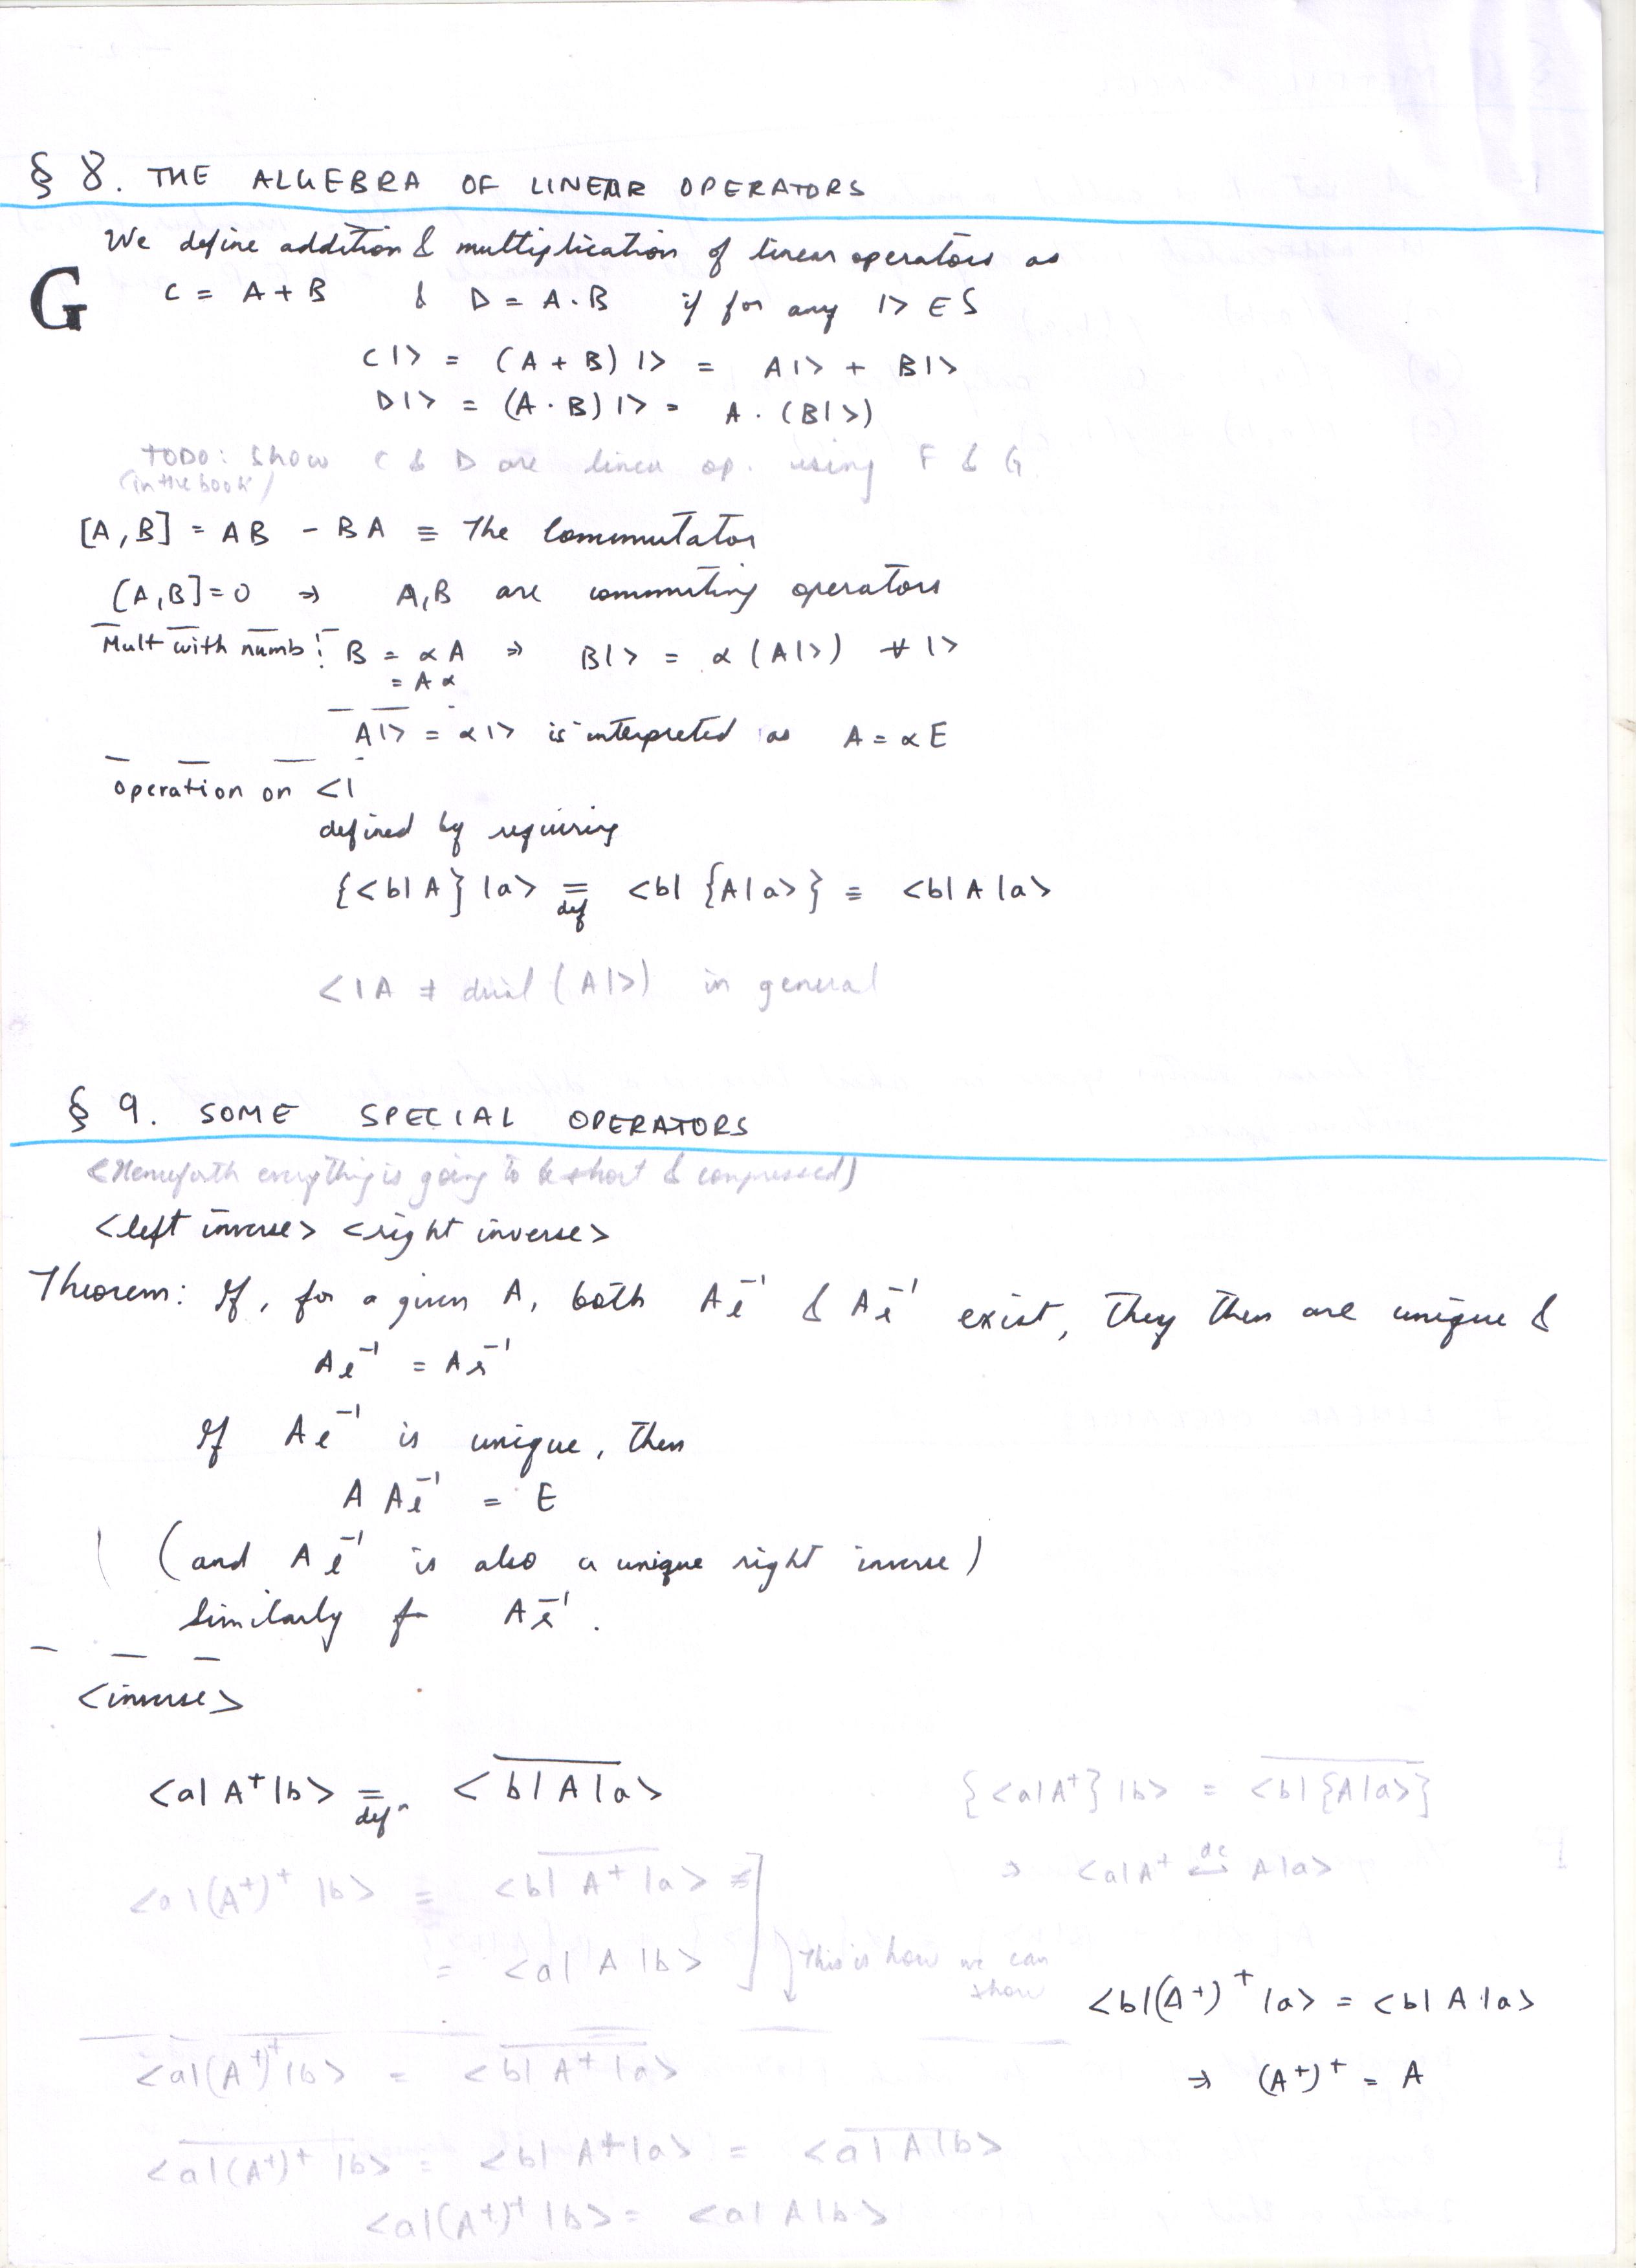 § 8. THE ALGEBRA OF LINEAR OPERATORS
We define addition & multiplication of linear operators as
G
C = A + B & D = A · B if for any |> ∈ S
C|> = (A + B) |> = A|> + B|>
D|> = (A · B) |> = A · (B|>)
TODO: Show C & D are linear op. using F & G
(in the book)
[A,B] = AB - BA ≡ The Commutator
[A,B]=0 ⇒ A,B are commuting operators
Mult with numb: B = αA ⇒ B|> = α(A|>) ∀ |>
= Aα
A|> = α|> is interpreted as A = αE
Operation on <|
defined by requiring
{<b|A} |a> = <b| {A|a>} ≡ <b|A|a>
def
<|A ≠ dual (A|>) in general
§ 9. SOME SPECIAL OPERATORS
(Henceforth everything is going to be short & compressed)
<left inverse> <right inverse>
Theorem: If, for a given A, both A_l⁻¹ & A_r⁻¹ exist, They then are unique &
A_l⁻¹ = A_r⁻¹
If A_l⁻¹ is unique, then
A A_l⁻¹ = E
(and A_l⁻¹ is also a unique right inverse)
Similarly for A_r⁻¹.
<inverse>
<a|A⁺|b> = \overline{<b|A|a>}
defⁿ
{<a|A⁺}|b> = \overline{<b|{A|a>}}
⇒ <a|A⁺ \overset{dc}{↔} A|a>
<a|(A⁺)⁺|b> = \overline{<b|A⁺|a>}
= <a|A|b>
This is how we can
show
<b|(A⁺)⁺|a> = <b|A|a>
⇒ (A⁺)⁺ = A
<a|(A⁺)⁺|b> = \overline{<b|A⁺|a>}
\overline{<a|(A⁺)⁺|b>} = <b|A⁺|a> = \overline{<a|A|b>}
<a|(A⁺)⁺|b> = <a|A|b>